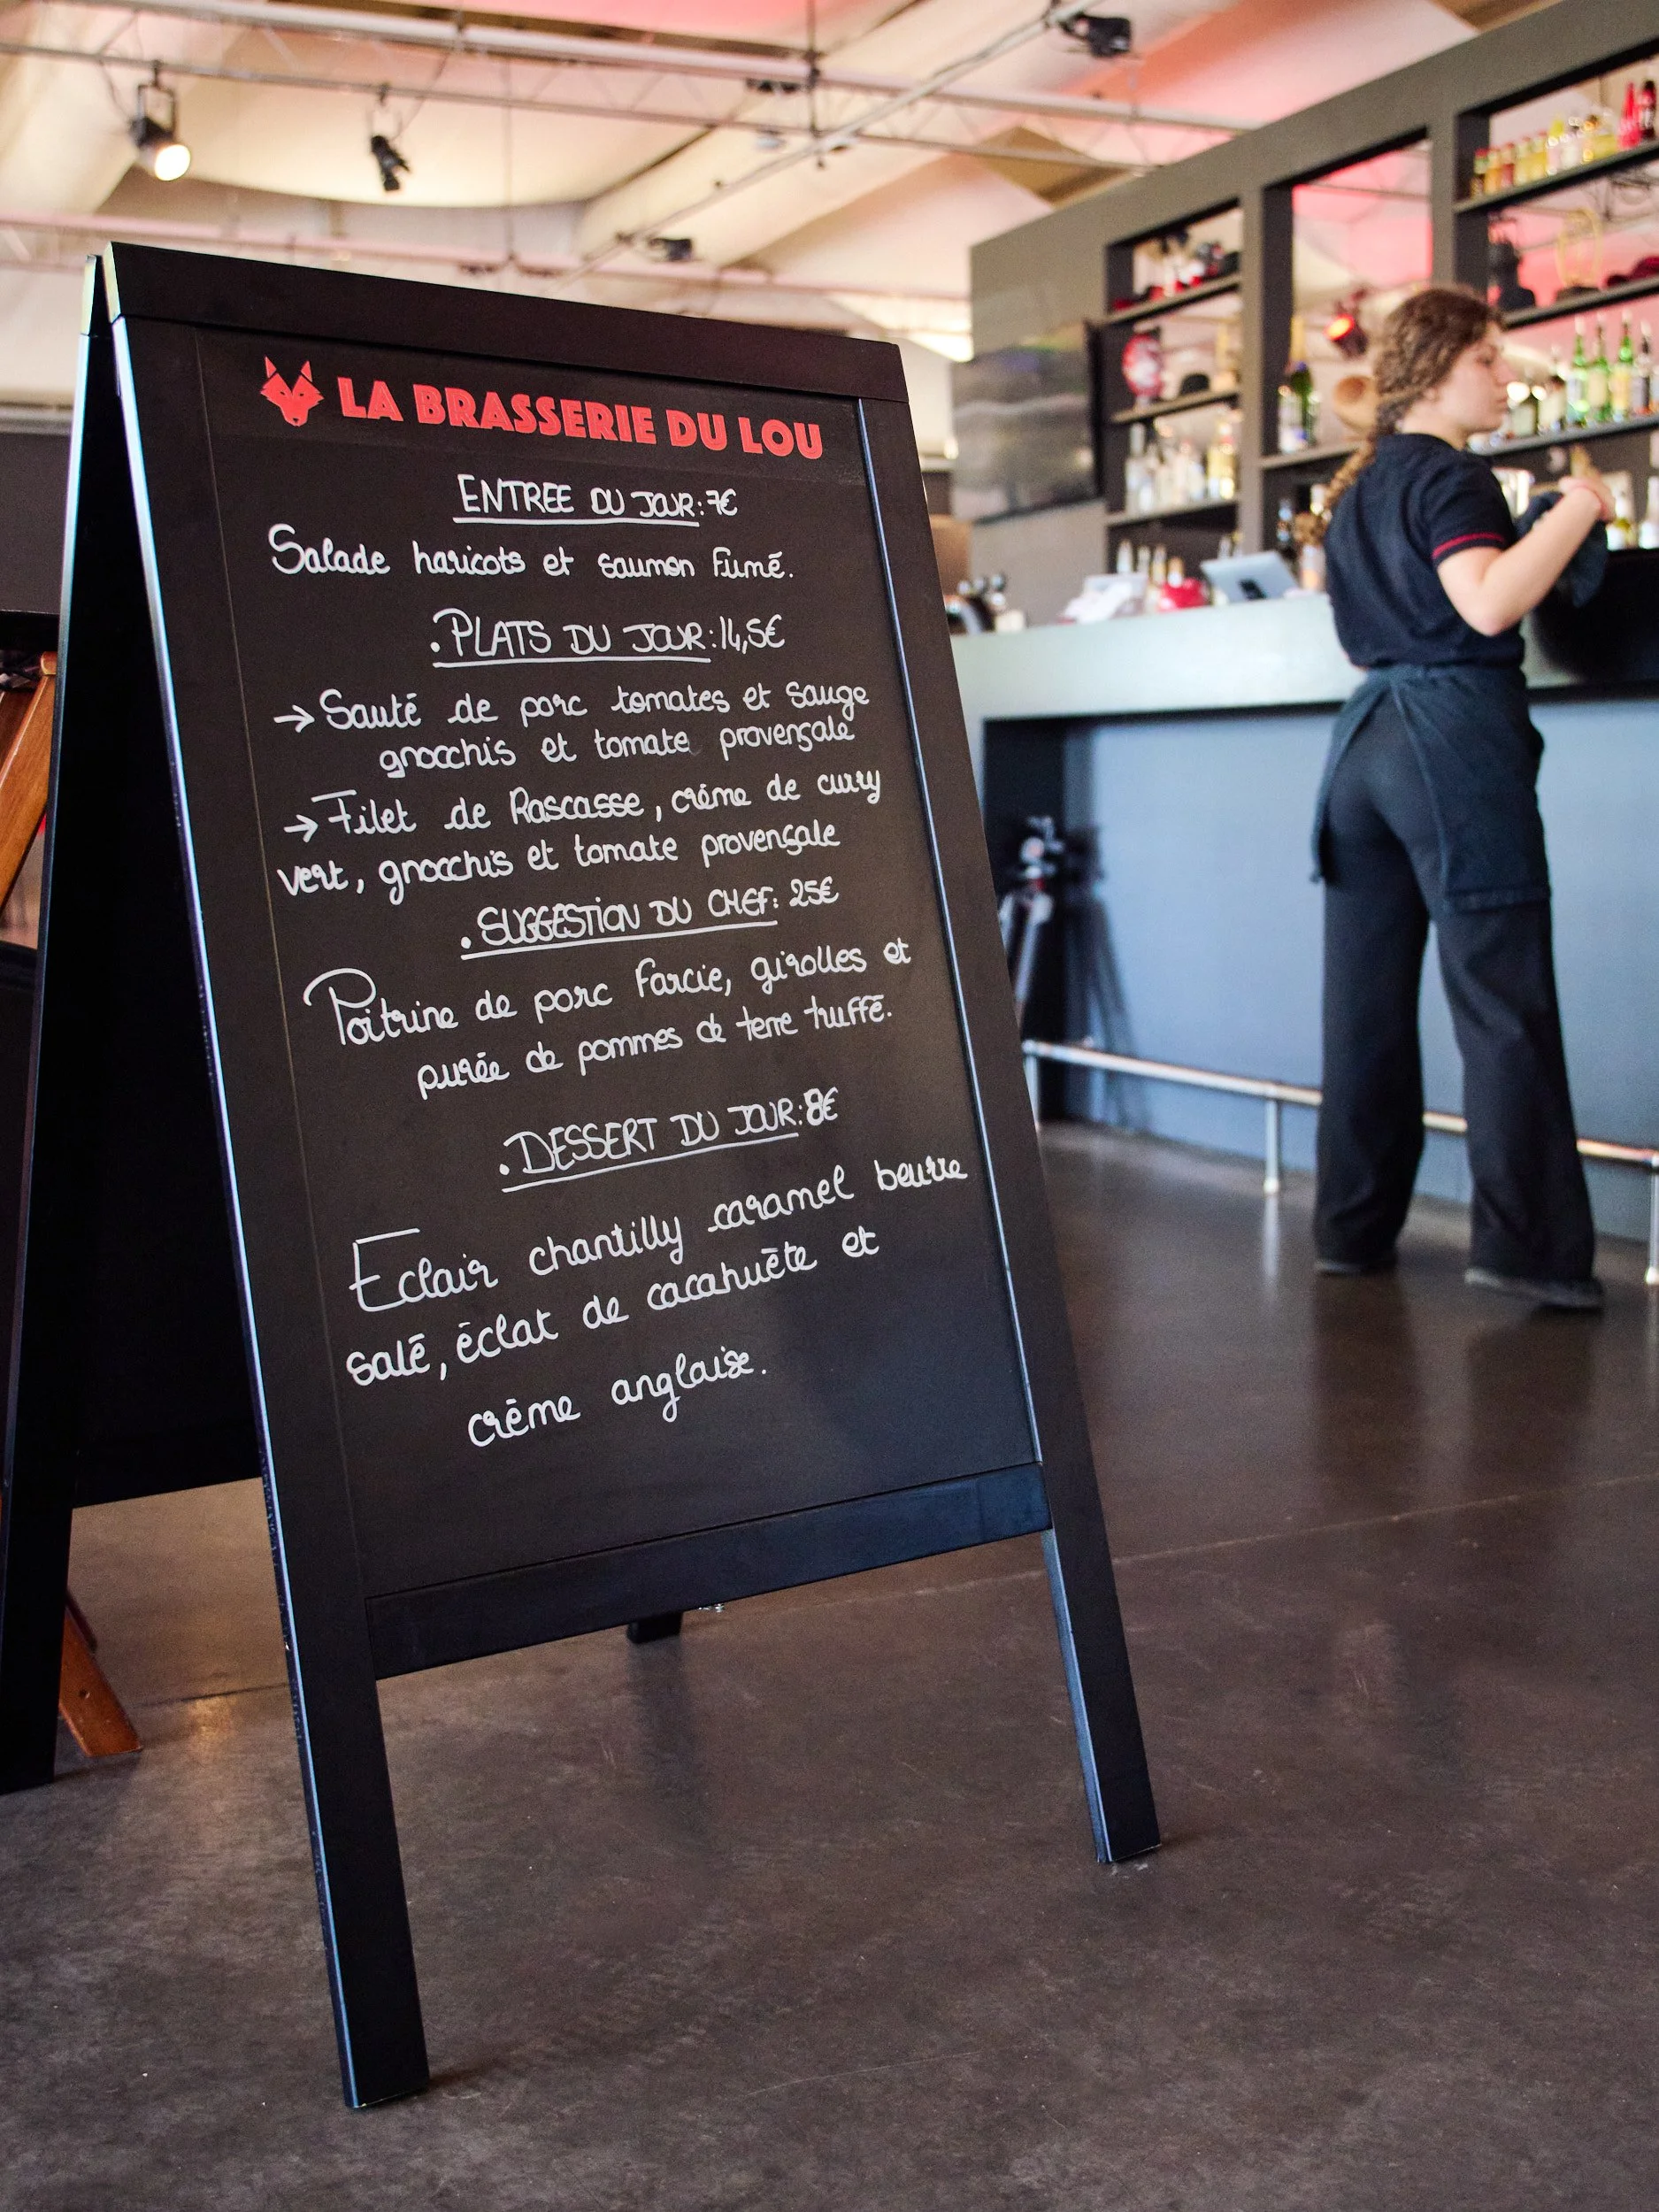 LA BRASSERIE DU LOU
ENTREE DU JOUR: 7€
Salade haricots et saumon Fumé.
.PLATS DU JOUR: 14,5€
→ Sauté de porc tomates et sauge
gnocchis et tomate provençale
→ Filet de Rascasse, crème de curry
vert, gnocchis et tomate provençale
.SUGGESTION DU CHEF: 25€
Poitrine de porc Farcie, girolles et
purée de pommes de terre truffé.
.DESSERT DU JOUR: 8€
Eclair chantilly caramel beurre
salé, éclat de cacahuète et
crème anglaise.